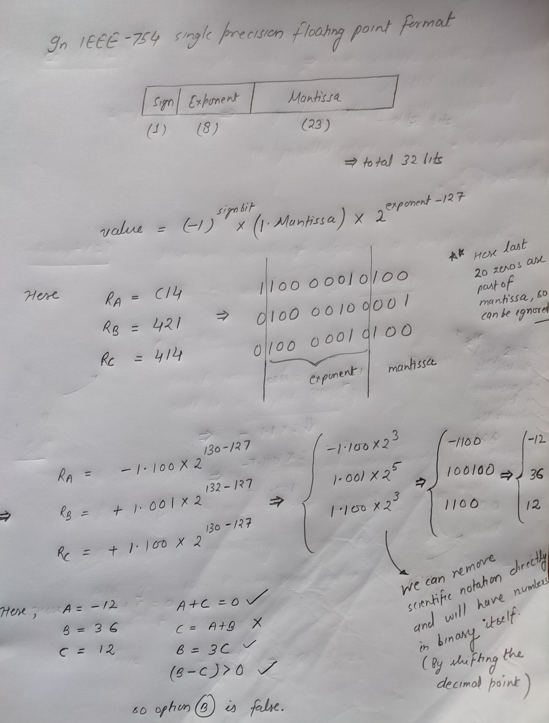 In IEEE-754 single precision floating point format
Sign Exponent Mantissa
(1) (8) (23)
⇒ total 32 bits
value = (-1)^signbit × (1.Mantissa) × 2^exponent-127
** Here last
20 zeros are
part of
mantissa, so
can be ignored
Here RA = C14 ⇒ 1 100 0001 0 100
RB = 421 0 100 0010 0 001
RC = 414 0 100 0001 0 100
exponent mantissa
⇒ RA = -1.100 × 2^130-127 ⇒ -1.100 × 2^3 ⇒ -1100 ⇒ -12
RB = +1.001 × 2^132-127 1.001 × 2^5 100100 36
RC = +1.100 × 2^130-127 1.100 × 2^3 1100 12
We can remove
scientific notation directly
and will have numbers
in binary itself.
(By shifting the
decimal point)
Here, A = -12 A+C = 0 ✓
B = 36 C = A+B ×
C = 12 B = 3C ✓
(B-C) > 0 ✓
so option (B) is false.